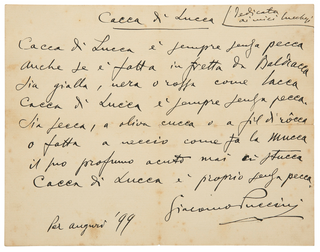 Cacca di Lucca
(Dedicata
ai miei lucchesi)
Cacca di Lucca è sempre senza pecca
anche se è fatta in fretta da Baldracca
sia gialla, nera o rossa come lacca
Cacca di Lucca è sempre senza pecca.
Sia secca, a oliva cucca o a fil di ròcca
o fatta a neccio come fa la mucca
il suo profumo acuto mai ci stucca
Cacca di Lucca è proprio senza pecca.
Giacomo Puccini
Per auguri '99